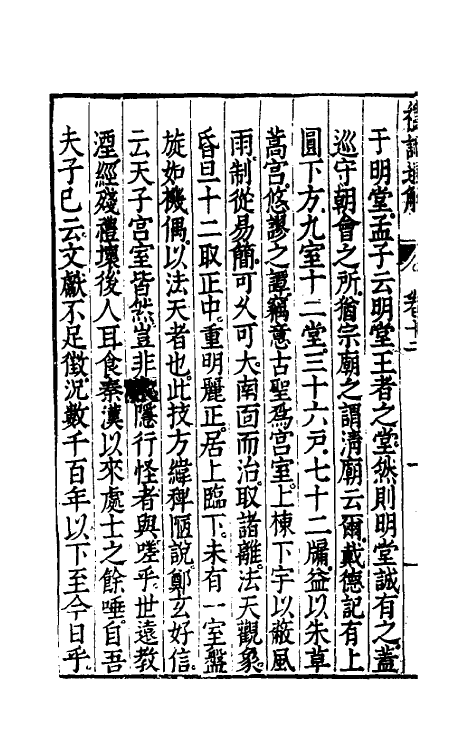 禮記通解
于明堂孟子云明堂王者之堂然則明堂誠有之蓋
巡守朝會之所猶宗廟之謂淸廟云爾戴德記有上
圓下方九室十二堂三十六戸七十二牖益以朱草
蒿宮悠謬之譚竊意古聖爲宮室上棟下宇以蔽風
雨制從易簡可久可大南面而治取諸離法天觀象
昏旦十二取正中重明麗正居上臨下未有一室盤
旋如機偶以法天者也此技方緯稗陋說鄭玄好信
云天子宮室皆然豈非隱行怪者與嗟乎世遠敎
湮經殘禮壞後人耳食秦漢以來處士之餘唾自吾
夫子已云文獻不足徵況數千百年以下至今日乎